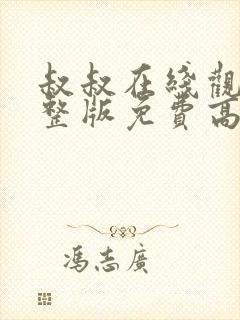 叔叔在线觀
整版免費高
馮志廣